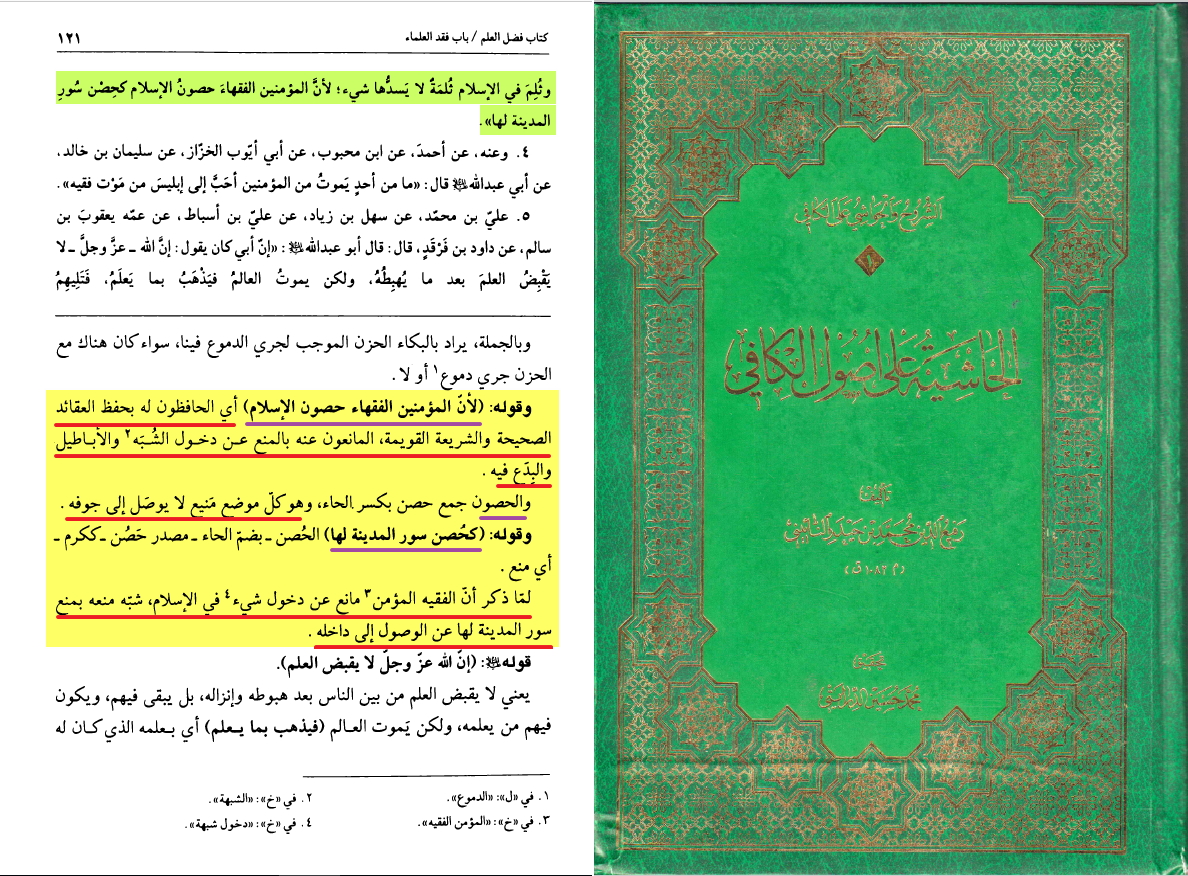 كتاب فضل العلم / باب فقد العلماء
١٢١
وثُلِمَ في الإسلام ثُلمَةٌ لا يَسدُّها شيء؛ لأنَّ المؤمنين الفقهاءَ حصونُ الإسلام كحِصْن سُورِ
المدينة لها».
٤. وعنه، عن أحمدَ، عن ابن محبوب، عن أبي أيّوب الخزّاز، عن سليمان بن خالد،
عن أبي عبدالله ﷺ قال: «ما من أحدٍ يَموتُ من المؤمنين أحَبَّ إلى إبليسَ من مَوْت فقيه».
٥. عليّ بن محمّد، عن سهل بن زياد، عن عليّ بن أسباط، عن عمّه يعقوبَ بن
سالم، عن داود بن فَرْقَدٍ، قال: قال أبو عبدالله ﷺ: «إنّ أبي كان يقول: إنَّ الله ـ عزَّ وجلَّ ـ لا
يَقْبِضُ العلمَ بعد ما يُهبِطُهُ، ولكن يموتُ العالمُ فيَذْهَبُ بما يَعلَمُ، فَتَلِيهِمُ
وبالجملة، يراد بالبكاء الحزن الموجب لجري الدموع فينا، سواء كان هناك مع
الحزن جري دموع١ أو لا.
وقوله: (لأنّ المؤمنين الفقهاء حصون الإسلام) أي الحافظون له بحفظ العقائد
الصحيحة والشريعة القويمة، المانعون عنه بالمنع عـن دخـول الشُـبَه٢ والأبـاطيل
والبِدَع فيه.
والحصون جمع حصن بكسر الحاء، وهو كلّ موضع مَنيع لا يوصَل إلى جوفه.
وقوله: (كحُصن سور المدينة لها) الحُصن ـ بضمّ الحاء ـ مصدر حَصُن ـ ككرم ـ
أي منع.
لمّا ذكر أنّ الفقيه المؤمن٣ مانع عن دخول شيء٤ في الإسلام، شبّه منعه بمنع
سور المدينة لها عن الوصول إلى داخله.
قوله ﷺ: (إنّ الله عزّ وجلّ لا يقبض العلم).
يعني لا يقبض العلم من بين الناس بعد هبوطه وإنزاله، بل يبقى فيهم، ويكون
فيهم من يعلمه، ولكن يَموت العـالم (فيذهب بما يـعلم) أي بـعلمه الذي كـان له
١. في «ل»: «الدموع».
٢. في «خ»: «الشبهة».
٣. في «خ»: «المؤمن الفقيه».
٤. في «خ»: «دخول شبهة».
الشروح والحواشي على الكافي
الحاشية على أصول الكافي
تأليف
رفيع الدين محمد بن حيدر النائيني
(م ١٠٨٢ ق)
تحقيق
محمد حسين الدرايتي